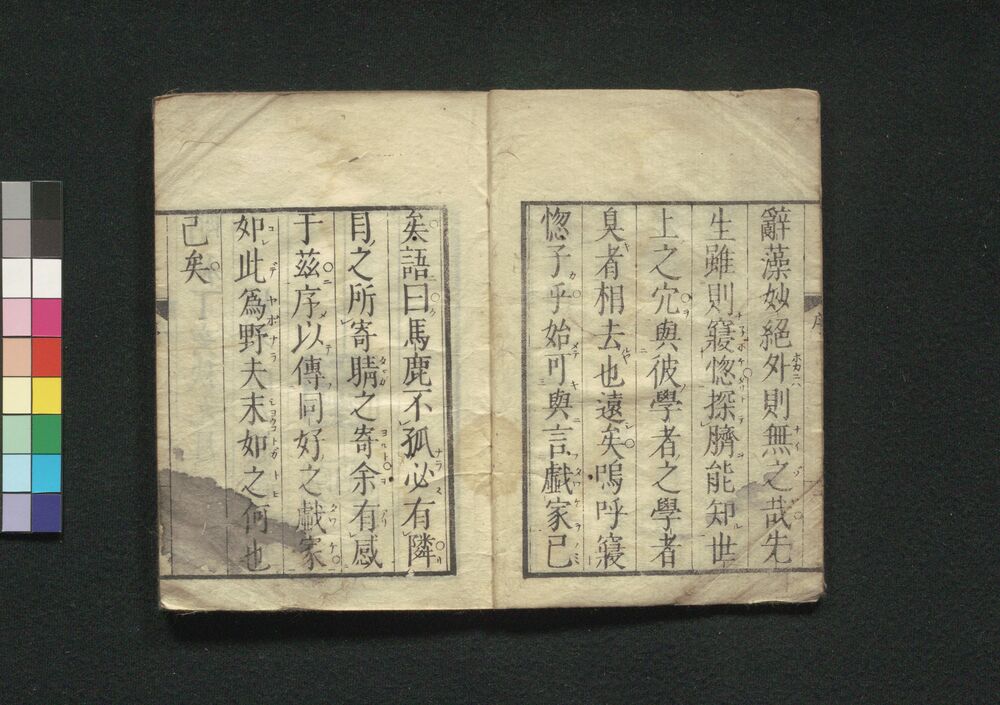 辭藻妙絕外則無之哉先
生雖則寢惚探臍能知世
上之穴與彼學者之學者
臭者相去也遠矣嗚呼寢
惚子乎始可與言戲家已
矣語曰馬鹿不孤必有隣
目之所寄睛之寄余有感
于茲序以傳同好之戲家
如此爲野夫末如之何也
已矣
序